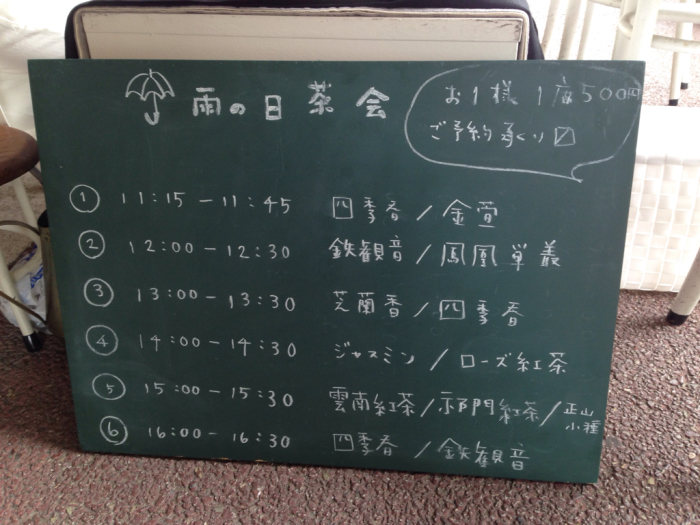 雨の日茶会
お1様 1席500円
ご予約承くり〼
① 11:15-11:45 四季春/金萱
② 12:00-12:30 鉄観音/鳳凰単叢
③ 13:00-13:30 芝蘭香/四季春
④ 14:00-14:30 ジャスミン/ローズ紅茶
⑤ 15:00-15:30 雲南紅茶/祁門紅茶/正山小種
⑥ 16:00-16:30 四季春/鉄観音